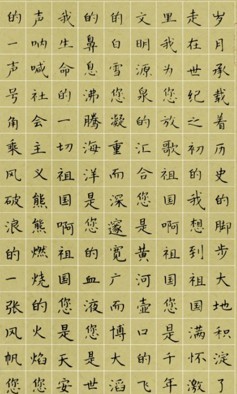 岁月承载着历史的脚步大地积淀了
走在世纪之初的我想到祖国满怀激
里我为您放歌祖国啊祖国您是千年
文明源泉的汇合您是黄河壶口的飞
的白雪您凝重而深邃宽广而博大滔
的鼻息沸腾海洋是您的血液您是世
我生命的一切祖国啊祖国您是天安
声呐喊社会主义熊熊燃烧的火焰您
的一声号角乘风破浪的一张风帆您